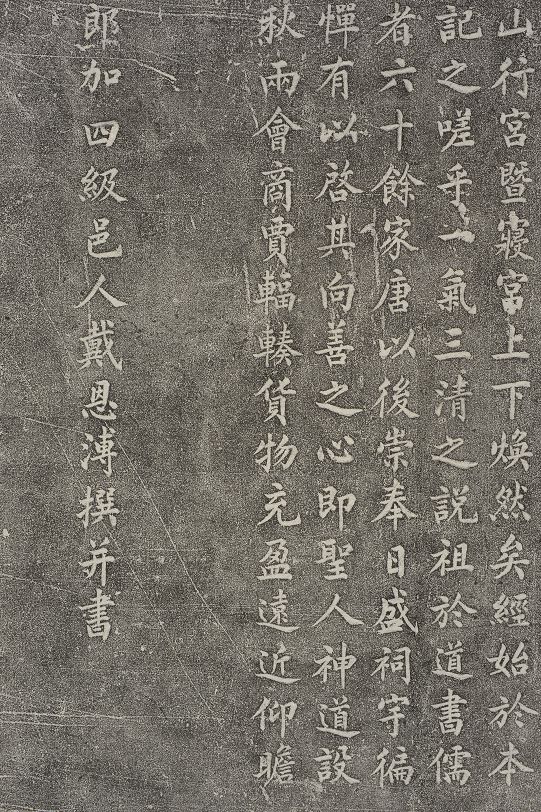 山行宮暨寢宮上下煥然矣經始於本
記之嗟乎一氣三清之説祖於道書儒
者六十餘家唐以後崇奉日盛祠宇徧
憚有以啓其向善之心即聖人神道設
秋兩會商賈輻輳貨物充盈遠近仰瞻
郎加四級邑人戴恩溥撰并書